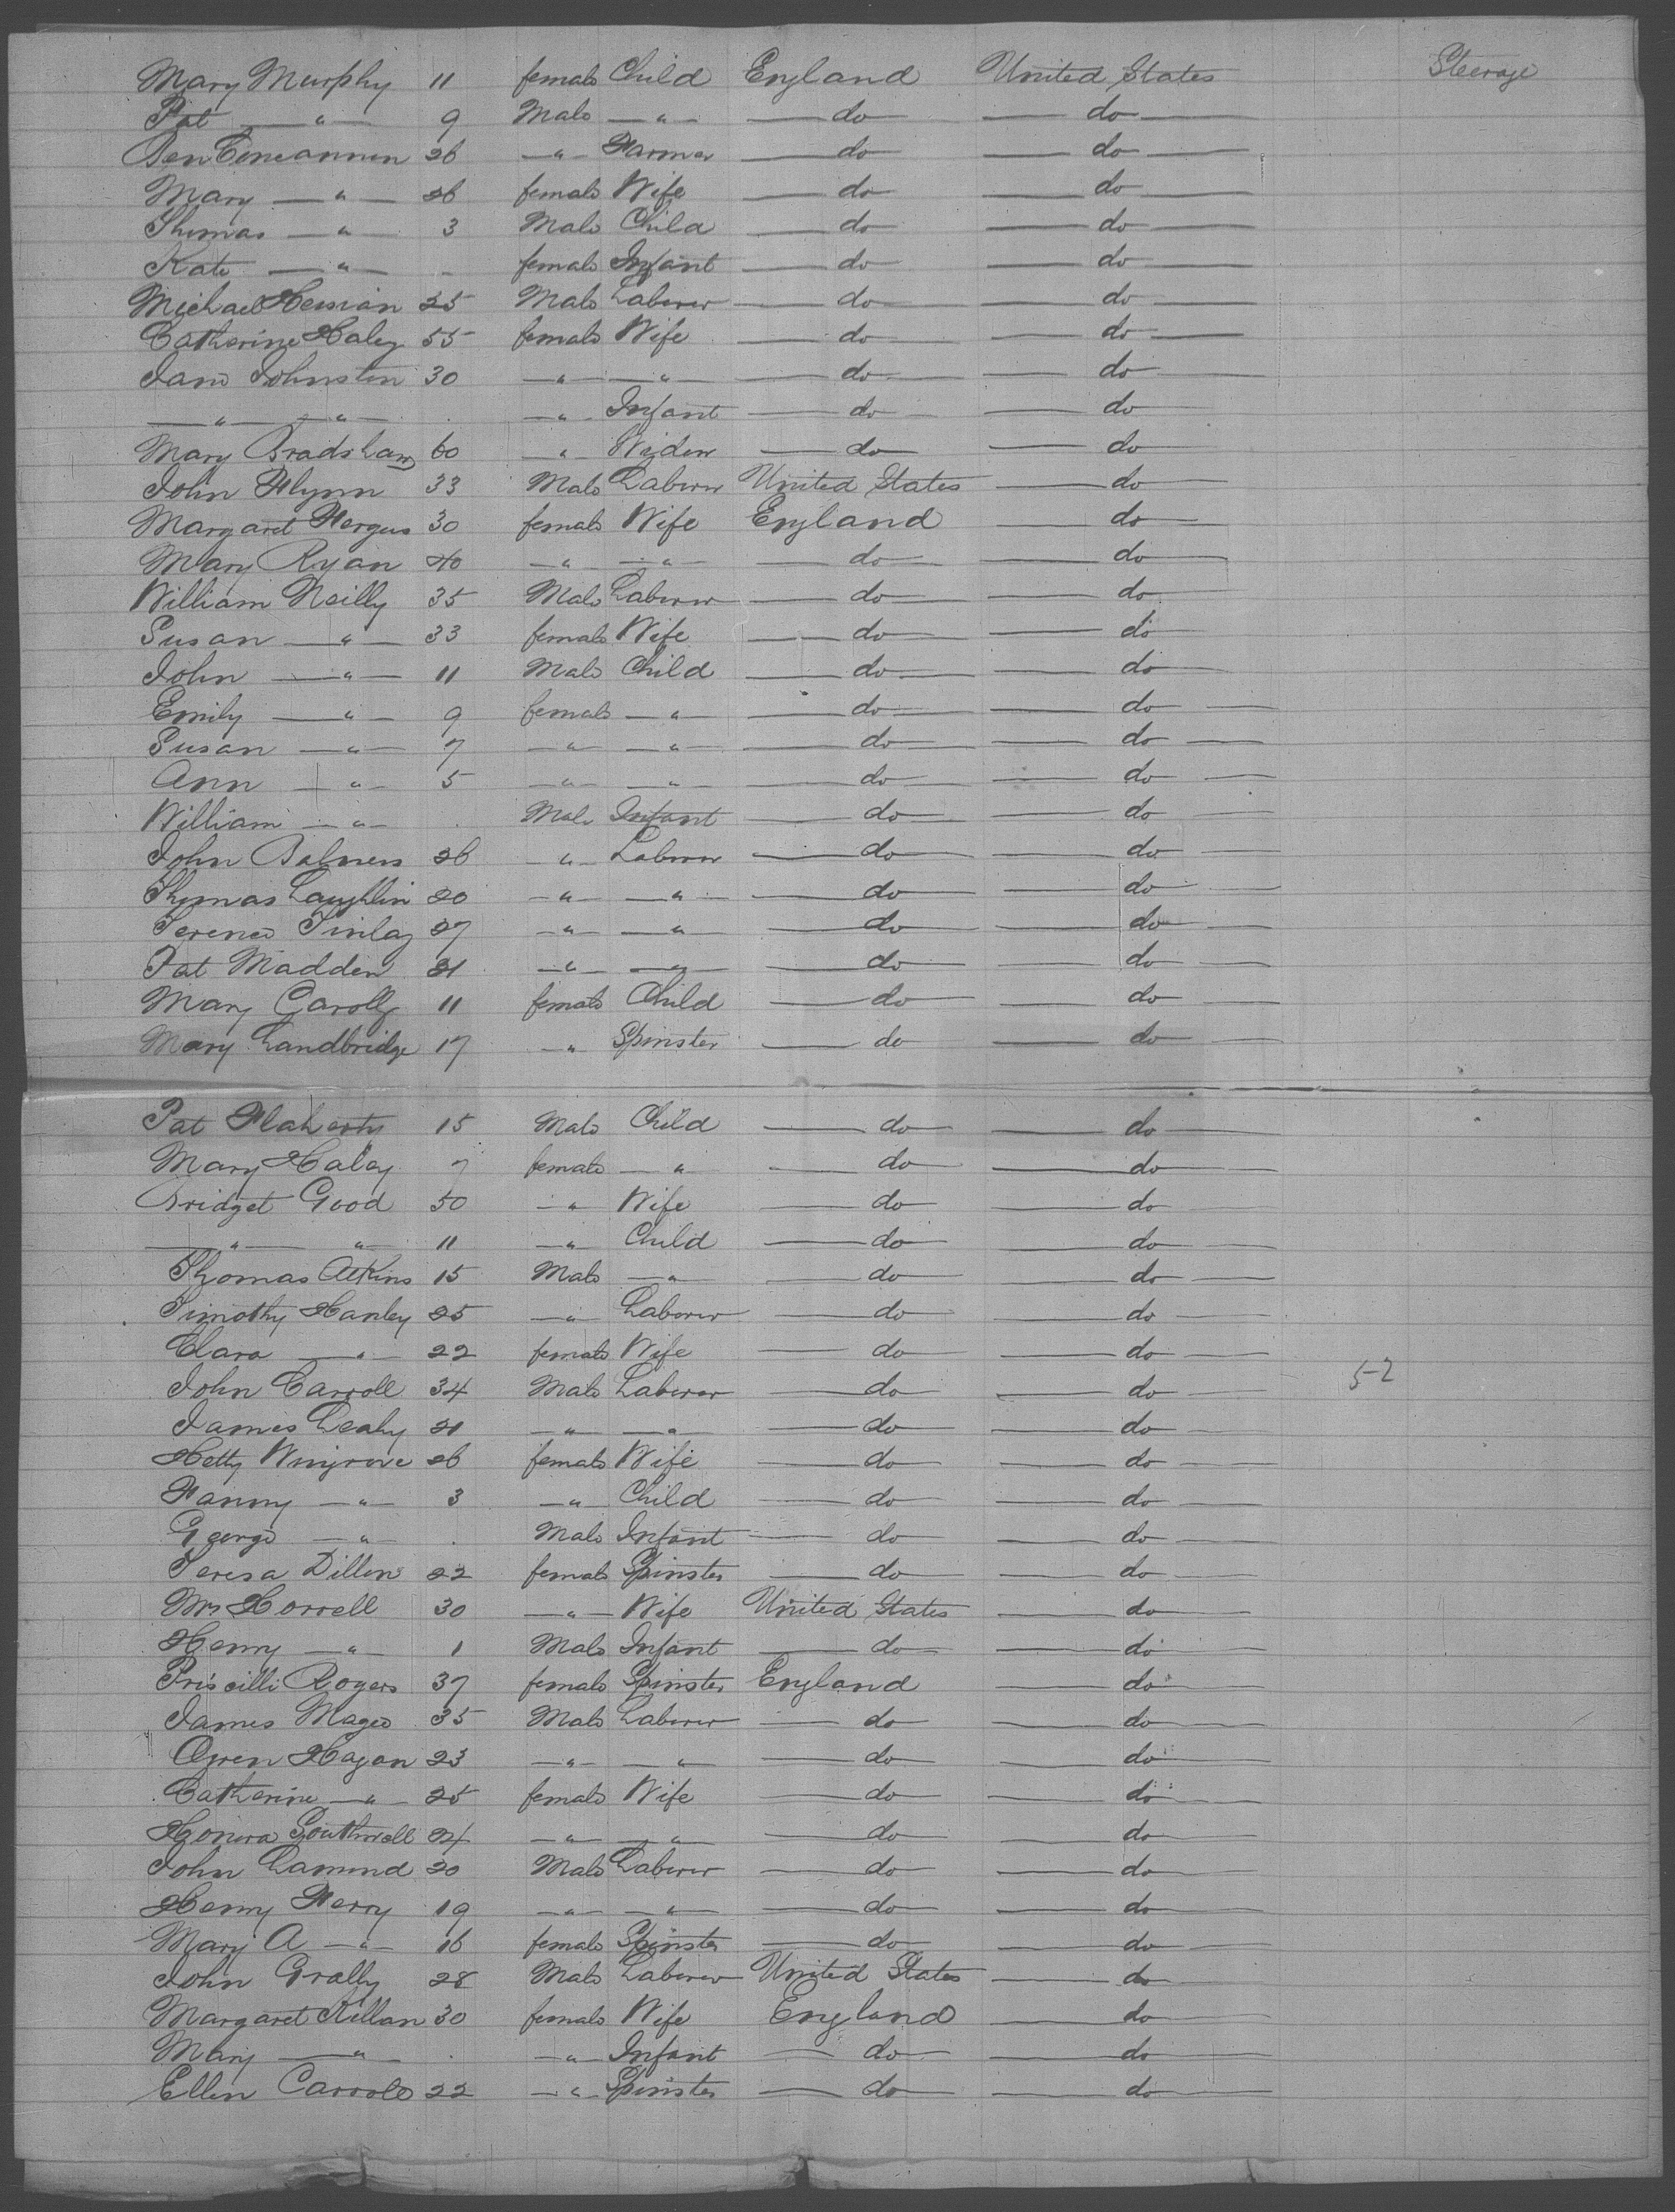 Mary Murphy 11 female Child England United States Steerage
Pat — " — 9 Male — " — — do — — do —
Ben Concannon 26 — " — Farmer — do — — do —
Mary — " — 26 female Wife — do — — do —
Thomas — " — 3 Male Child — do — — do —
Kate — " — . female Infant — do — — do —
Michael 25 Male Laborer — do — — do —
Catherine Haley 55 female Wife — do — — do —
Jane Johnston 30 — " — — " — — do — — do —
— " — — " — . — " — Infant — do — — do —
Mary Bradshaw 60 — " — Widow — do — — do —
John Flynn 33 Male Laborer United States — do —
Margaret Fergus 30 female Wife England — do —
Mary Ryan 40 — " — — " — — do — — do —
William Neilly 35 Male Laborer — do — — do —
Susan — " — 33 female Wife — do — — do —
John — " — 11 Male Child — do — — do —
Emily — " — 9 female — " — — do — — do —
Susan — " — 7 — " — — " — — do — — do —
Ann — " — 5 — " — — " — — do — — do —
William — " — . Male Infant — do — — do —
John 26 — " — Laborer — do — — do —
Thomas Laughlin 20 — " — — " — — do — — do —
Terence Finlay 27 — " — — " — — do — — do —
Pat Madden 21 — " — — " — — do — — do —
Mary 11 female Child — do — — do —
Mary Landbridge 17 — " — Spinster — do — do —
Pat Flaherty 15 Male Child — do — — do —
Mary Haley 7 female — " — do — — do —
Bridget Good 50 — " — Wife — do — — do —
— " — — " — 11 — " — Child — do — — do —
Thomas Atkins 15 Male — " — — do — — do —
Timothy Hanley 25 — " — Laborer — do — — do —
Clara — " — 22 female Wife — do — — do —
John Carroll 34 Male Laborer — do — — do — 52
James Leahy 21 — " — — " — — do — — do —
Hetty Wingrove 26 female Wife — do — — do —
Fanny — " — 3 — " — Child — do — — do —
George — " — . Male Infant — do — — do —
Teresa Dillon 22 female Spinster — do — — do —
Mrs Horrell 30 — " — Wife United States — do —
Henry — " — 1 Male Infant — do — — do —
Priscilli Rogers 37 female Spinster England — do —
James Magee 35 Male Laborer — do — — do —
Owen Hagan 23 — " — — " — — do — — do —
Catherine — " — 25 female Wife — do — — do —
Honora Southwell 24 — " — — " — — do — — do —
John Lamond 20 Male Laborer — do — — do —
Henry Ferry 19 — " — — " — — do — — do —
Mary A — " — 16 female Spinster — do — — do —
John Grally 28 Male Laborer United States — do —
Margaret Killan 30 female Wife England — do —
Mary — " — . — " — Infant — do — — do —
Ellen Carroll 22 — " — Spinster — do — — do —